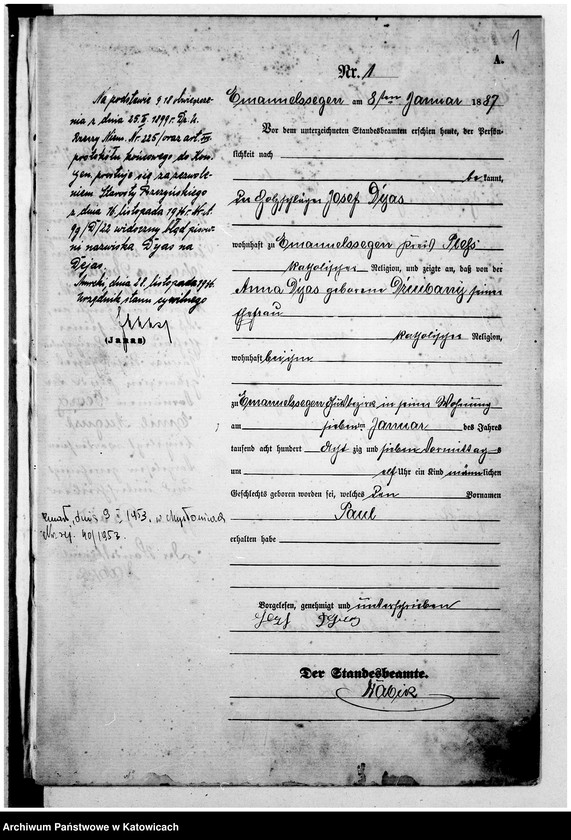 1
A.
Nr. 1
Emanuelssegen am 8ten Januar 1887
Vor dem unterzeichneten Standesbeamten erschien heute, der Persön-
lichkeit nach
bekannt,
der Holzschläger Josef Dyas
wohnhaft zu Emanuelssegen Kreis Pleß
katholischer Religion, und zeigte an, daß von der
Anna Dyas geborene seiner
Ehefrau
katholischer Religion,
wohnhaft bei ihm
zu Emanuelssegen Gutsbezirk in seiner Wohnung
am siebenten Januar des Jahres
tausend acht hundert acht zig und sieben Vormittags
um elf Uhr ein Kind männlichen
Geschlechts geboren worden sei, welches den Vornamen
Paul
erhalten habe
Vorgelesen, genehmigt und unterschrieben
Josef Dyas
Der Standesbeamte.
Na podstawie § 18
nia z dnia 25.
Rzeszy Niem. Nr. 225/oraz art.
protokołu końcowego do Kon-
prostuje się za zezwole-
niem Starosty Pszczyńskiego
z dnia 16. listopada
99/ /22 widoczny błąd pisow-
ni nazwiska Dyas na
Dyjas.
Murcki, dnia listopada
Urzędnik stanu cywilnego
(Janas)
zmarł, dnia 9 I 1953. w Mysłowicach
Nr. rej. 40/1953.
Archiwum Państwowe w Katowicach